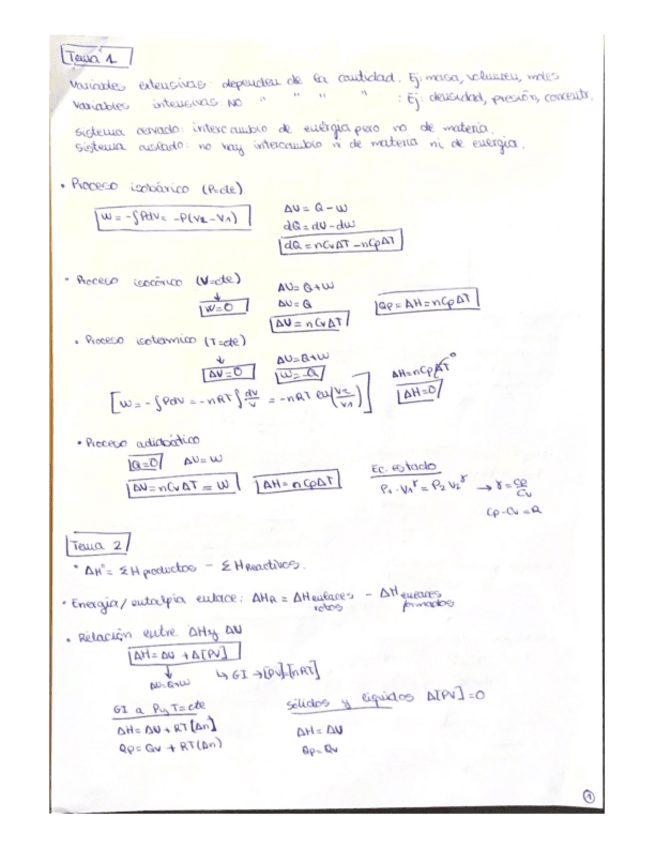 Tema 1
Variables extensivas: dependen de la cantidad. Ej: masa, volumen, moles
Variables intensivas NO " " " " : Ej: densidad, presión, concentr.
Sistema cerrado: intercambio de energía pero no de materia.
Sistema aislado: no hay intercambio ni de materia ni de energía.
• Proceso isobárico (P=cte)
W = -∫PdV = -P(V2 - V1)
ΔU = Q - W
dQ = dU - dW
dQ = nCvΔT - nCpΔT
• Proceso isocórico (V=cte)
↓
W=0
ΔU = Q+W
ΔU = Q
ΔU = nCvΔT
Qp = ΔH = nCpΔT
• Proceso isotermico (T=cte)
↓
ΔU=0
ΔU=Q+W
W=-Q
[W = -∫PdV = -nRT ∫ dV/V = -nRT ln(V2/V1)]
ΔH=nCpΔT 0
ΔH=0
• Proceso adiabático
Q=0 ΔU=W
ΔU=nCvΔT = W
ΔH = nCpΔT
Ec. estado
P1·V1^γ = P2 V2^γ → γ = Cp/Cv
Cp-Cv=R
Tema 2
• ΔH° = ΣH productos - ΣH Reactivos.
• Energía/entalpia enlace: ΔHR = ΔH enlaces rotos - ΔH enlaces formados
• Relación entre ΔH y ΔU
ΔH = ΔU + Δ[PV]
↓
ΔU=Q+W
↳ GI → [PV]=[nRT]
GI a P y T=cte
ΔH = ΔU + RT[Δn]
Qp = Qv + RT(Δn)
Sólidos y líquidos Δ[PV] = 0
ΔH = ΔU
Qp = Qv
1